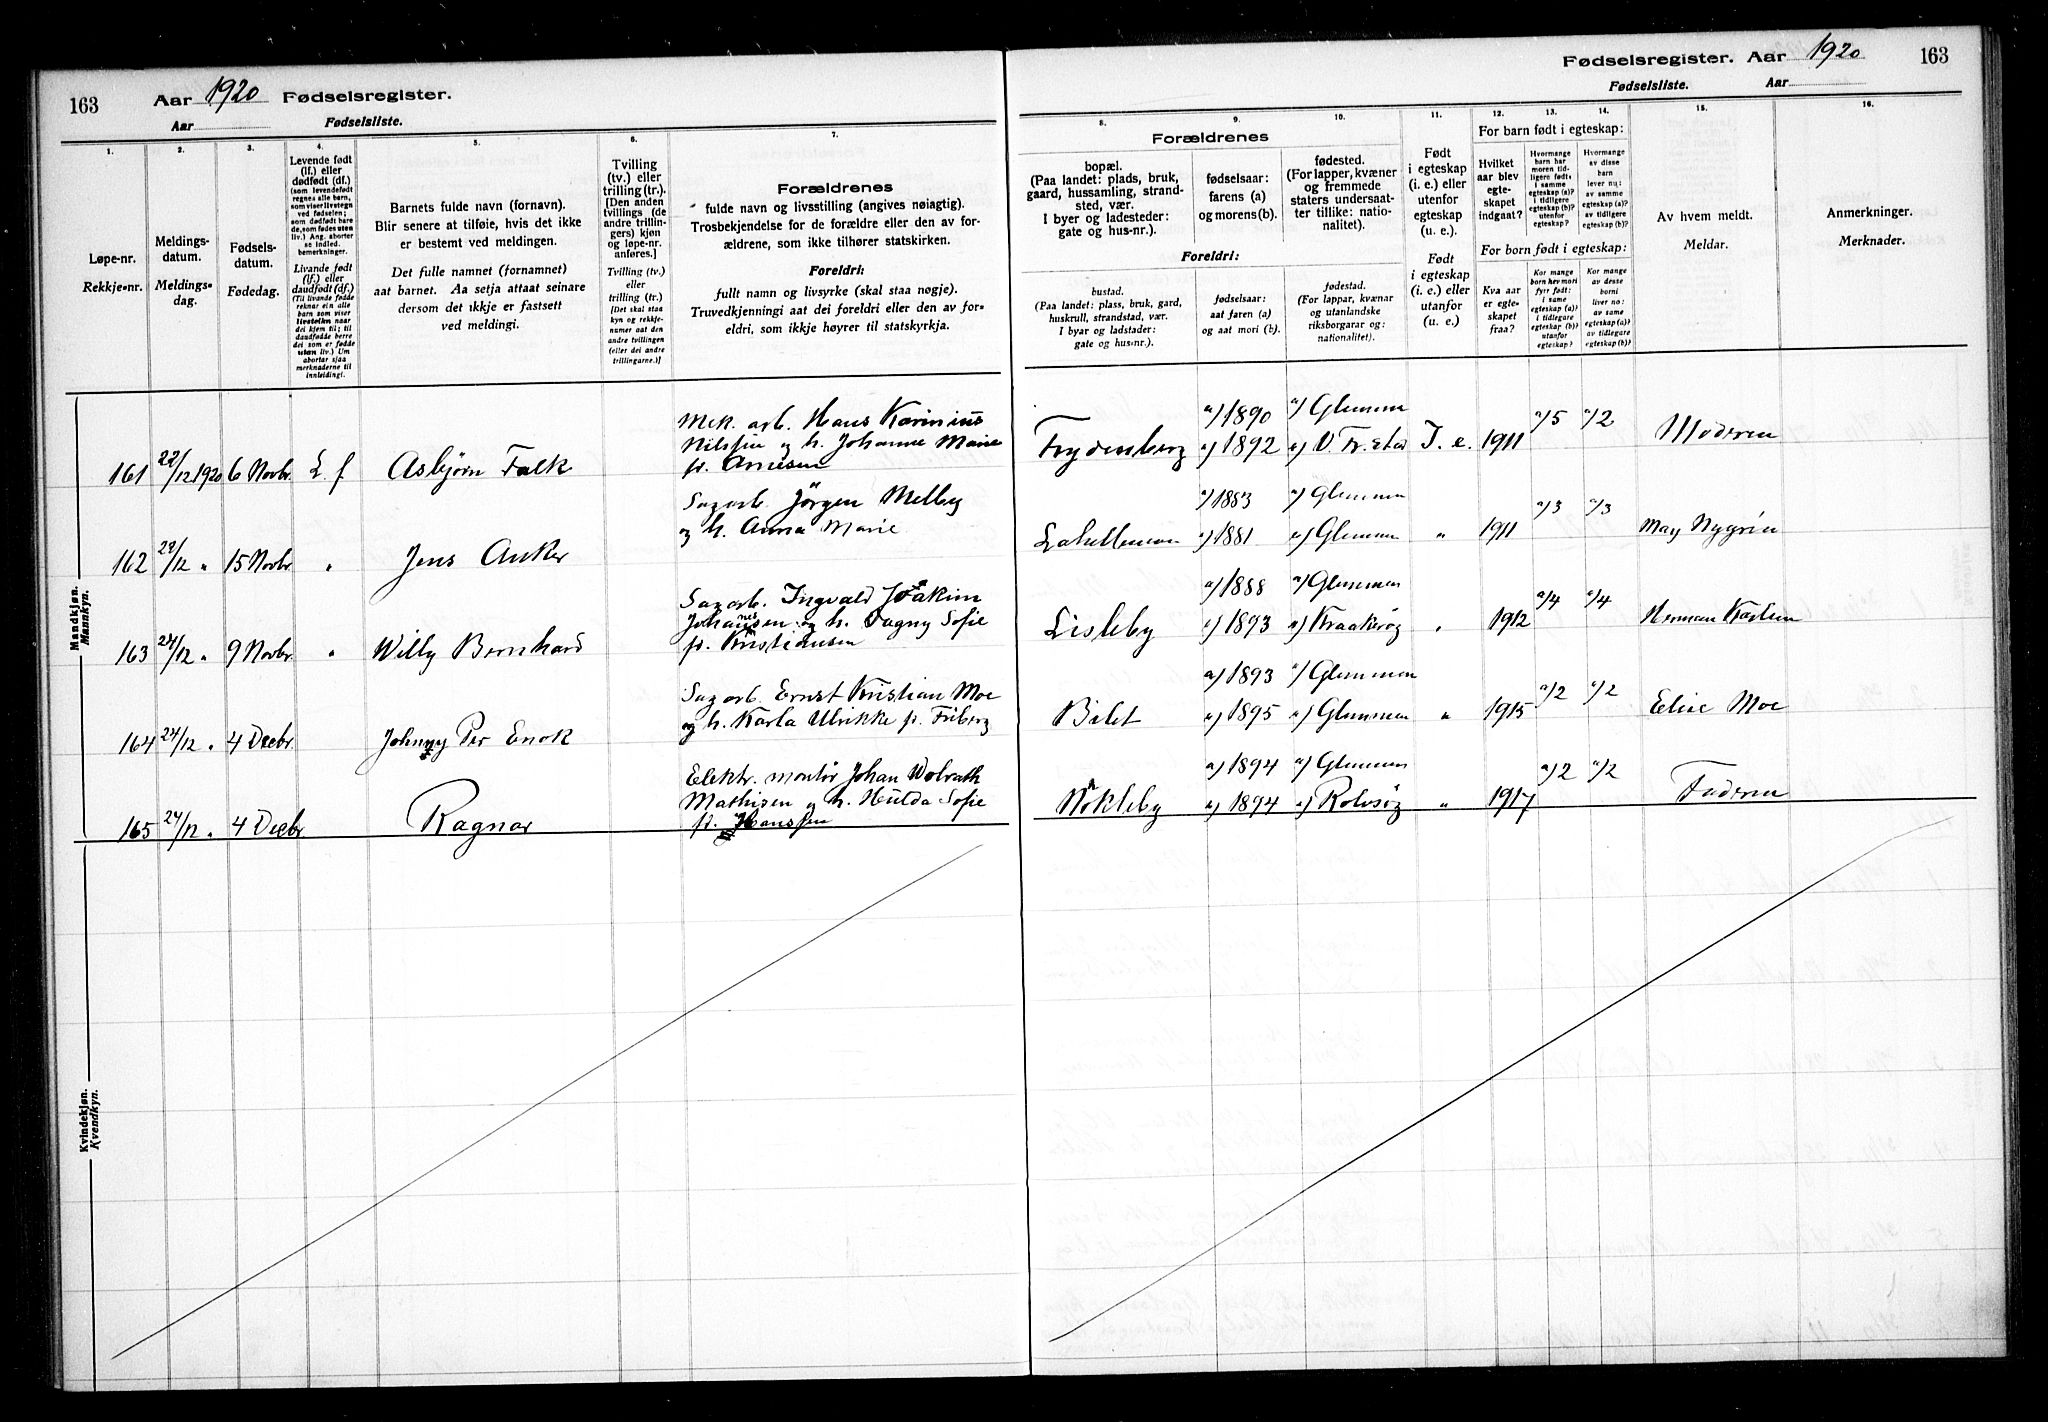 163
Aar 1920 Fødselsregister.
Aar Fødselsliste.
1.
Løpe-nr.
Rekkje-nr.
2.
Meldings-
datum.
Meldings-
dag.
3.
Fødsels-
datum.
Fødedag.
4.
Levende født
(lf.) eller
dødfødt (df.)
(som levendefødt
regnes alle barn,
som viser livstegn
ved fødselen;
som dødfødt bare
de, som fødes uten
liv.) Ang. aborter
se indled.
bemerkninger.
Livande født
(lf.) eller
daudfødt (df.)
(Til livande fødde
reknar ein alle
barn som viser
livsteikn naar
dei kjem til; til
daudfødde berre
dei som er fødde
utan liv.) Um
abortar sjaa
merknaderne til
innleidingi.
5.
Barnets fulde navn (fornavn).
Blir senere at tilføie, hvis det ikke
er bestemt ved meldingen.
Det fulle namnet (fornamnet)
aat barnet. Aa setja attaat seinare
dersom det ikkje er fastsett
ved meldingi.
6.
Tvilling
(tv.) eller
trilling (tr.).
[Den anden
tvillings (de
andre trillin-
gers) kjøn
og løpe-nr.
anføres.]
Tvilling (tv.)
eller
trilling (tr.)
[Det skal staa
kyn og rekkje-
numer aat den
andre tvillingen
(eller dei andre
trillingarne.)]
7.
Forældrenes
fulde navn og livsstilling (angives nøiagtig).
Trosbekjendelse for de forældre eller den av for-
ældrene, som ikke tilhører statskirken.
Foreldri:
fullt namn og livsyrke (skal staa nøgje).
Truvedkjenningi aat dei foreldri eller den av for-
eldri, som ikkje høyrer til statskyrkja.
Mandkjøn.
Mannkyn.
161 22/12 1920 6 Novbr. L. f Asbjørn Falk
Mek. arb. Hans Karinius
Nilssen og h. Johanne Marie
f. Arnesen
162 22/12 " 15 Novbr " Jens Anker
Sagarb. Jörgen Melby
og h. Anna Marie
163 24/12 " 9 Novbr " Willy Bernhard
Sagarb. Ingvald Joakim
Johannesen og h. Dagny Sofie
f. Kristiansen
164 24/12 " 4 Decbr. Johnny Per Enok
Sagarb. Ernst Kristian Moe
og h. Karla Ulrikke f. Friberg
165 24/12 " 4 Decbr Ragnar
Elektr. montör Johan Wolrath
Mathisen og h. Hulda Sofie
f. Hanssen
Kvindekjøn.
Kvendkyn.
Fødselsregister. Aar 1920
163
Fødselsliste. Aar
Forældrenes
8.
bopæl.
(Paa landet: plads, bruk,
gaard, hussamling, strand-
sted, vær.
I byer og ladesteder:
gate og hus-nr.).
9.
fødselsaar:
farens (a)
og morens (b).
10.
fødested.
(For lapper, kvæner
og fremmede
staters undersaat-
ter tillike: natio-
nalitet).
Foreldri:
bustad.
(Paa landet: plass, bruk, gard,
huskrull, strandstad, vær.
I byar og ladstader:
gate og hus-nr.).
fødselsaar:
aat faren (a)
og aat mori (b).
fødestad.
(For lappar, kvænar
og utanlandske
riksborgarar og:
nationalitet).
11.
Født
i egteskap
(i. e.) eller
utenfor
egteskap
(u. e.).
Født
i egteskap
(i. e.) eller
utanfor
(u. e.).
For barn født i egteskap:
12.
Hvilket
aar blev
egte-
skapet
indgaat?
13.
Hvormange
barn har
moren tid-
ligere født:
i samme
egteskap (a)?
i tidligere
egteskap (b)?
utenfor
egteskap?
14.
Hvormange
av disse
barn
lever nu:
av samme
egteskap (a)?
av tidligere
egteskap (b)?
For born født i egteskap:
Kva aar
er egte-
skapet
fraa?
Kor mange
born hev mori
fyrr født:
i same
egteskap (a)?
i tidlegare
egteskap (b)?
utanfor
egteskap?
Kor mange
av desse
borni
liver no:
av same
egteskap (a)?
av tidlegare
egteskap (b)?
15.
Av hvem meldt.
Meldar.
16.
Anmerkninger.
Merknader.
a) 1890 a) Glemmen a/5 a/2
Frydenberg b) 1892 b) V. Fr.stad I. e. 1911 Moderen
a) 1883 a) Glemmen a/3 a/3
b) 1881 b) Glemmen " 1911 May Nygrén
a) 1888 a) Glemmen a/4 a/4
Lisleby b) 1893 b) Kraakerøy " 1912 Herman Karlsen
a) 1893 a) Glemmen a/2 a/2
Bilet b) 1895 b) Glemmen " 1915 Elise Moe
a) 1894 a) Glemmen a/2 a/2
Nökleby b) 1894 b) Rolvsøy " 1917 Faderen